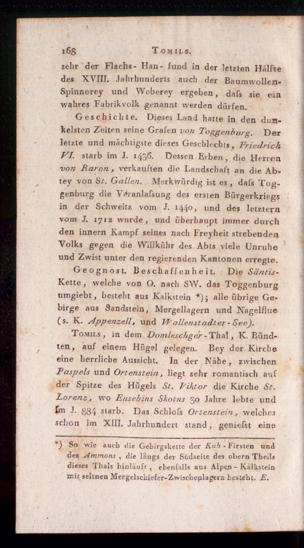 168 TOMILS.
sehr der Flachs- Han- fund in der letzten Hälfte
des XVIII. Jahrhunderts auch der Baumwollen-
Spinnerey und Weberey ergeben, daſs sie ein
wahres Fabrikvolk genannt werden dürfen.
Geschichte. Dieses Land hatte in den dun-
kelsten Zeiten seine Grafen von Toggenburg. Der
letzte und mächtigste dieses Geschlechts, Friedrich
VI. starb im J. 1436. Dessen Erben, die Herren
von Raron, verkauften die Landschaft an die Ab-
tey von St. Gallen. Merkwürdig ist es, daſs Tog-
genburg die Veranlaſsung des ersten Bürgerkriegs
in der Schweitz vom J. 1440, und des letztern
vom J. 1712 wurde, und überhaupt immer durch
den innern Kampf seines nach Freyheit strebenden
Volks gegen die Willkühr des Abts viele Unruhe
und Zwist unter den regierenden Kantonen erregte.
Geognost. Beschaffenheit. Die Säntis-
Kette, welche von O. nach SW. das Toggenburg
umgiebt, besteht aus Kalkstein *); alle übrige Ge-
birge aus Sandstein, Mergellagern und Nagelflue
(s. K. Appenzell, und Wallenstadter-See).
TOMILS, in dem Domleschger-Thal, K. Bünd-
ten, auf einem Hügel gelegen. Bey der Kirche
eine herrliche Aussicht. In der Nähe, zwischen
Paspels und Ortenstein, liegt sehr romantisch auf
der Spitze des Hügels St. Viktor die Kirche St.
Lorenz, wo Eusebins Skotus 30 Jahre lebte und
im J. 884 starb. Das Schloſs Ortenstein, welches
schon im XIII. Jahrhundert stand, genieſst eine
*) So wie auch die Gebirgskette der Kuh-Firsten und
des Ammons, die längs der Südseite des obern Theils
dieses Thals hinläuft, ebenfalls aus Alpen-Kalkstein
mit seltnen Mergelschiefer-Zwischenlagern besteht. E.